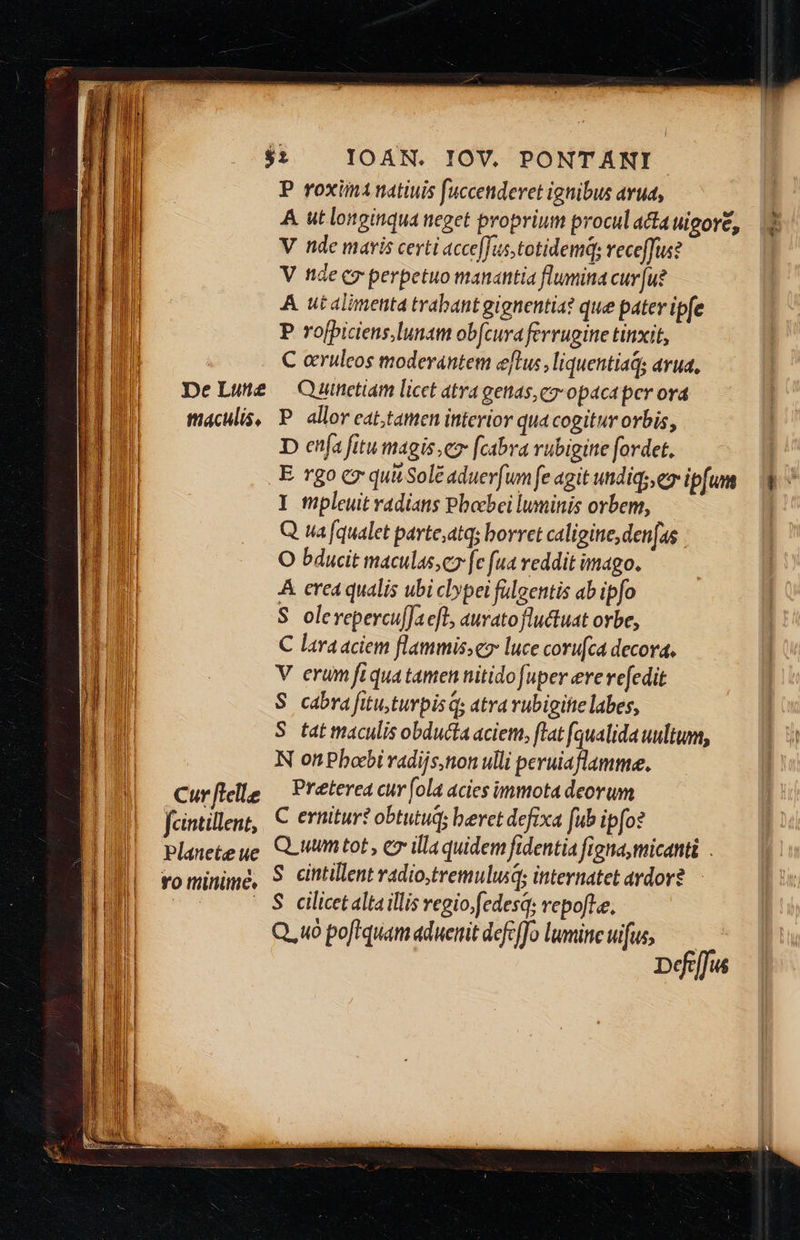 52 IOAN. IOV. PONTANI
P roximа natiuis ſuccenderet ignibus arua,
A ut longinqua neget proprium procul acta uigorē,
V nde maris certi acceſſus, totidemq; receſſus?
V nde & perpetuo manantia flumina curſu?
A ut alimenta trahant gignentia? que pater ipſe
P roſpiciens, lunam obſcura ferrugine tinxit,
C œruleos moderantem æſtus, liquentiaq; arua.
De Lunæ Quinetiam licet atra genas, & opaca per ora
maculis. P allor eat, tamen interior qua cogitur orbis,
D enſa ſitu magis, & ſcabra rubigine ſordet.
E rgo & quū Solē aduerſum ſe agit undiq;, & ipſum
I mpleuit radians Phœbei luminis orbem,
Q ua ſqualet parte, atq; horret caligine, denſas
O bducit maculas, & ſe ſua reddit imago.
A erea qualis ubi clypei fulgentis ab ipſo
S ole repercuſſa eſt, aurato fluctuat orbe,
C lara aciem flammis, & luce coruſca decora.
V erum ſi qua tamen nitido ſuper ære reſedit
S cabra ſitu, turpisq; atra rubigine labes,
S tat maculis obducta aciem, ſtat ſqualida uultum,
N on Phœbi radijs, non ulli peruia flammæ.
Cur ſtellæ Præterea cur ſola acies immota deorum
ſcintillent, C ernitur? obtutuq; hæret defixa ſub ipſo?
Planetæ ue Q uum tot, & illa quidem fidentia ſigna, micanti
ro minimè. S cintillent radio, tremulusq; internatet ardor?
S cilicet alta illis regio, ſedesq; repoſtæ.
Q uò poſtquam aduenit defeſſo lumine uiſus,
Defeſſus